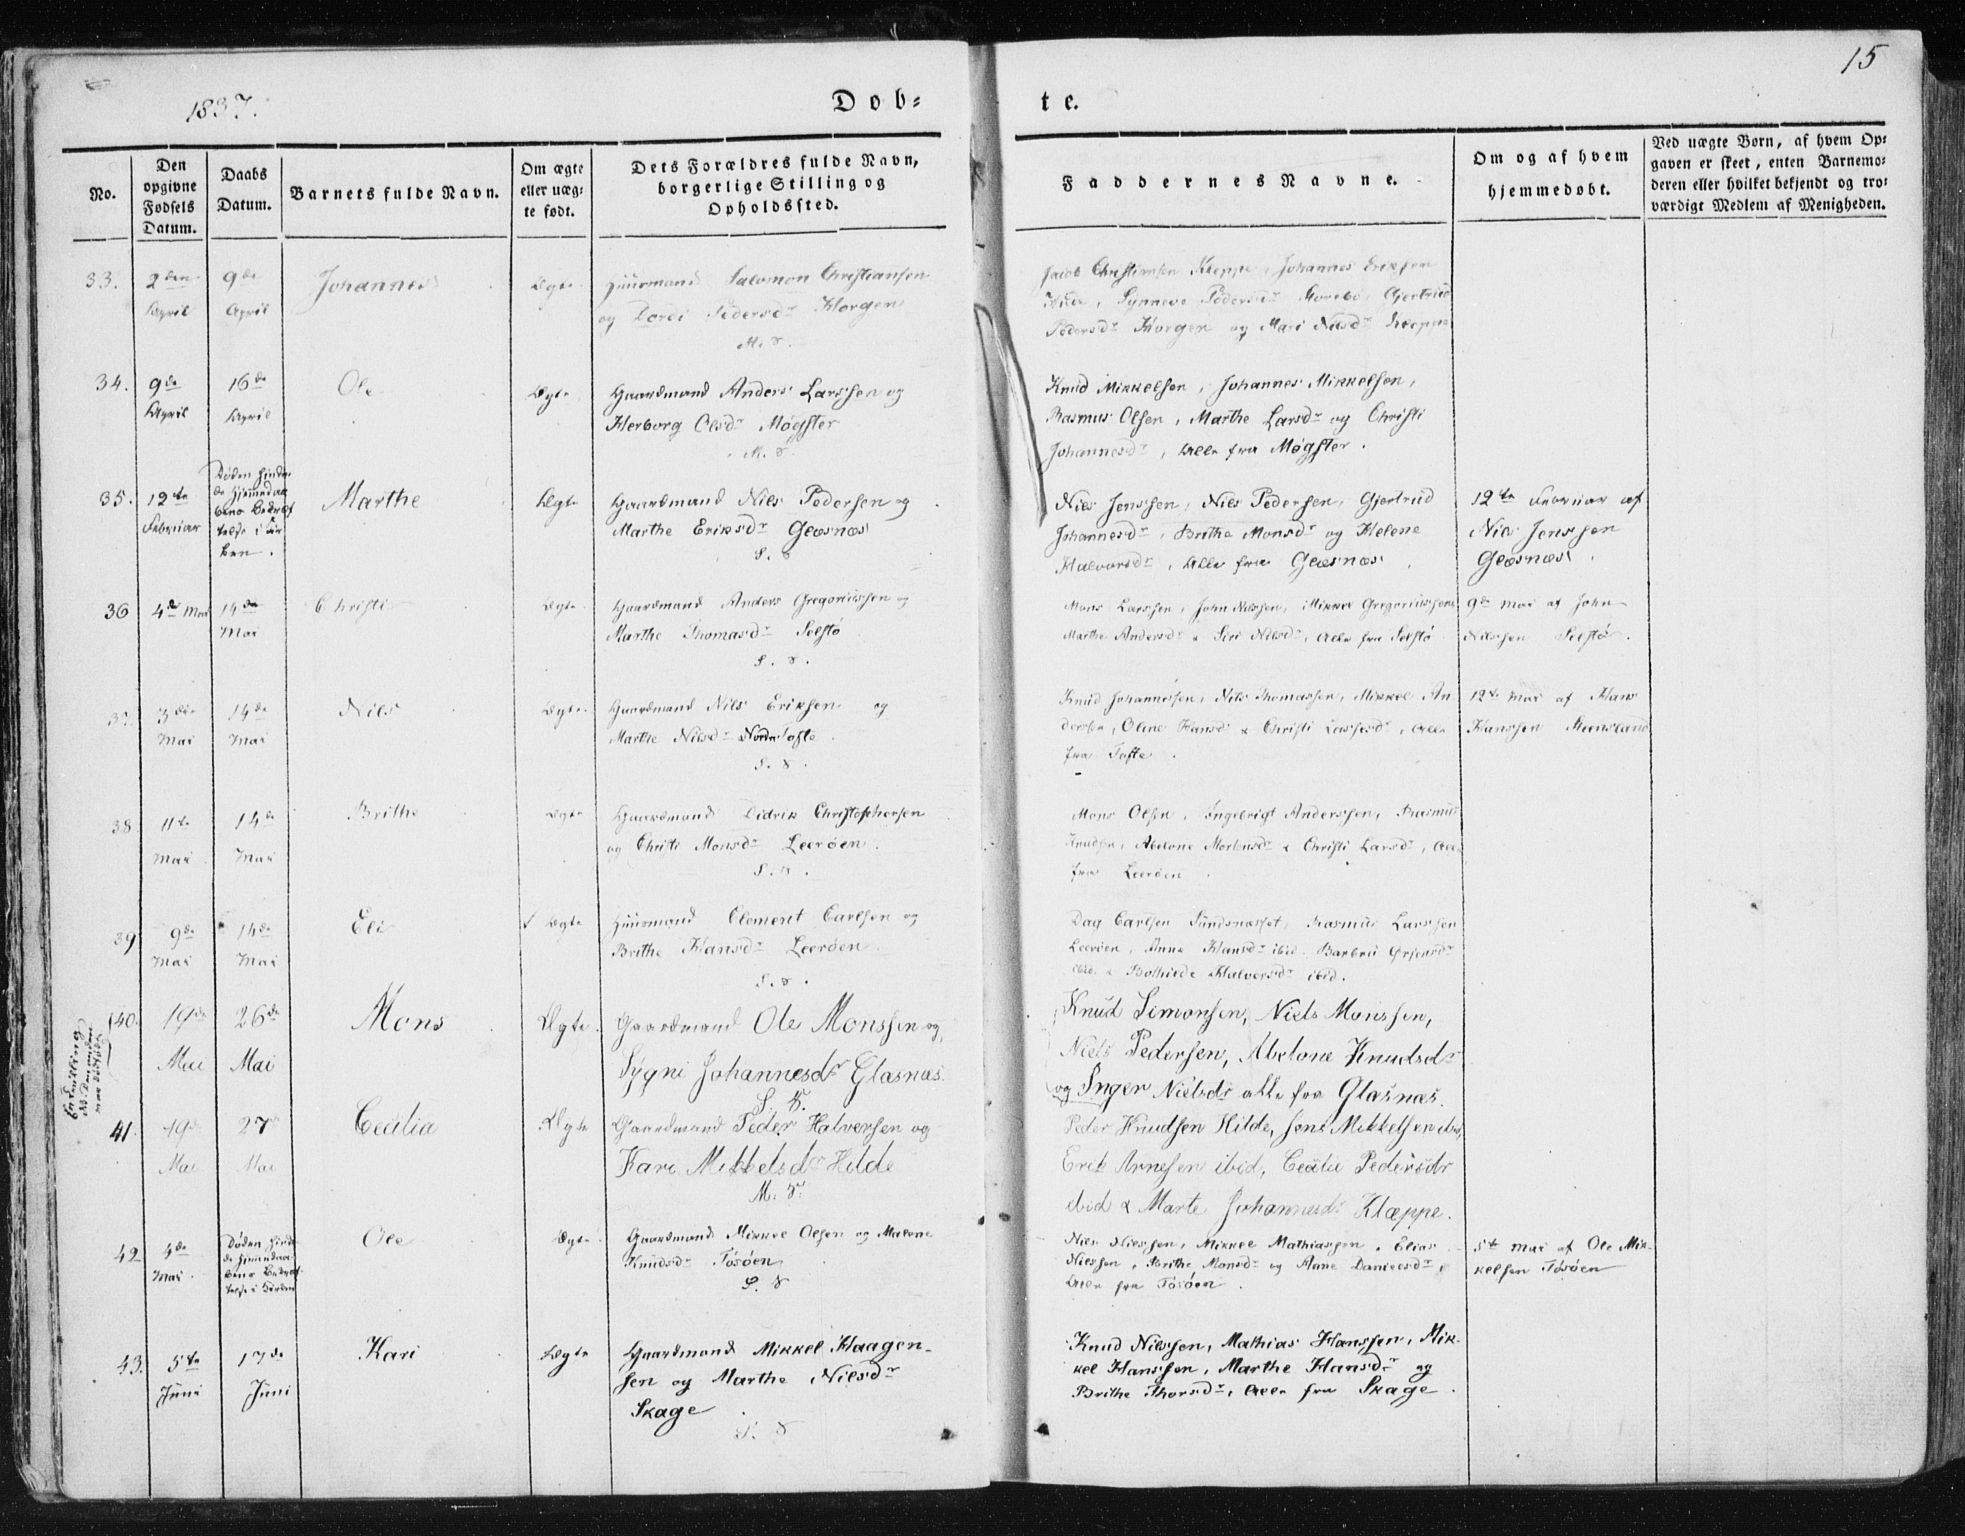 1837.
Døb-
te.
15
No.
Den opgivne Fødsels Datum.
Daabs Datum.
Barnets fulde Navn.
Om ægte eller uæg- te født.
Dets Forældres fulde Navn, borgerlige Stilling og Opholdssted.
Faddernes Navne.
Om og af hvem hjemmedøbt.
Ved uægte Børn, af hvem Op-
gaven er skeet, enten Barnemo-
deren eller hvilket bekjendt og tro-
værdigt Medlem af Menigheden.
33. 2den April 9de April Johannes Ægte
Huusmand Salomon Christiansen
og Dordi Pedersdr Horgen
M. S.
Jacob Christiansen Kleppe, Johannes Eriksen
Synneve Pedersdr Storebø, Gjertrud
Pedersdr Horgen og Mari Nilsdr Kleppe
34. 9de April 16de April Ole Ægte
Gaardmand Anders Larssen og
Herborg Olsdr Møgster
M. S.
Knud Mikkelsen, Johannes Mikkelsen,
Rasmus Olsen, Marthe Larsdr og Christi
Johannesdr, Alle fra Møgster.
35. 12te Februar
Marthe Ægte
Gaardmand Nils Pedersen og
Marthe Eriksdr Glæsnæs
S. S
Niels Jenssen, Niels Pedersen, Gjertrud
Johannesdr, Brithe Monsdr og Helene
Halvorsdr, Alle fra Glæsnæs.
12te Februar af
Niels Jenssen
Glæsnæs.
36 4de Mai 14de Mai Christi Ægte
Gaardmand Anders Gregoriussen og
Marthe Thomasdr Selstø
S. S.
Mons Larssen, John Nilssen, Mikkel Gregoriussen
Marthe Andersdr & Siri Nilsdr, Alle fra Selstø
9de Mai af John
Nilssen Selstø.
37. 3die Mai 14de Mai Nils Ægte
Gaardmand Nils Eriksen og
Marthe Nilsdr Nordre Tofte.
S. S.
Knud Johannessen, Nils Thomassen, Mikkel An
derssen, Oline Hansdr & Christi Lassesdr, Alle
fra Tofte.
12te Mai af Hans
Hanssen
38 11te Mai 14de Mai Brithe Ægte
Gaardmand Didrik Christophersen
og Christi Monsdr Leerøen.
S. S.
Mons Olsen, Ingebrigt Anderssen, Rasmus
Knudsen, Abelone Mortensdr & Christi Larsdr, Alle
fra Leerøen.
39 9de Mai 14de Mai Eli Ægte
Huusmand Clement Carlsen og
Brithe Hansdr Leerøen.
S. S.
Dag Carlsen Sundsnæsset, Rasmus Larssen
Leerøen, Anna Hansdr ibid. Barbru Ørjensdr
ibid. & Bothilde Halvorsdr ibid.
40. 19de Mai 26de Mai Mons Ægte.
Gaardmand Ole Monssen og
Sygni Johannesdr Glasnæs.
S. S.
Knud Simonsen, Niels Monssen,
Niels Pedersen, Abelone Knudsdr
og Inger Nielsdr alle fra Glasnæs.
41. 19de Mai 27de Mai Cecilia Ægte
Gaardmand Peder Halversen og
Kari Mikkelsdr Hilde
M. S.
Peder Knudsen Hilde, Jens Mikkelsen ibid,
Erik Arnesen ibid, Cecilia Pedersdr
ibid & Marte Johannesdr Klæppe.
42 4de Mai
Ole Ægte
Gaardmand Mikkel Olsen og Malene
Knudsdr Tøsøen
S. S
Niels Nielssen, Mikkel Mathiassen, Elias
Nielssen, Brithe Monsdr og Anne Danielsdr,
Alle fra Tøsøen.
5te Mai af Ole Mik-
kelsen Tøsøen
43. 5te Juni 17de Juni Kari Ægte
Gaardmand Mikkel Haagen-
sen og Marthe Nilsdr
Skage.
S. S
Knud Nilssen, Mathias Hanssen, Mik-
kel Hanssen, Marthe Hansdr og
Brithe Thorsdr, Alle fra Skage.